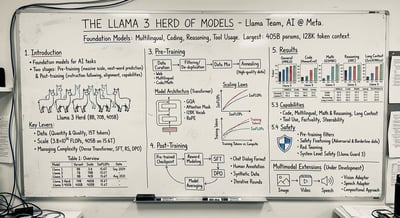 THE LLAMA 3 HERD OF MODELS - Llama Team, AI @ Meta.
Foundation Models: Multilingual, Coding, Reasoning, Tool Usage. Largest: 405B params, 128K token context.
1. Introduction
• Foundation models for AI tasks
• Two stages: Pre-training (massive scale, next-word prediction)
& Post-training (instruction following, alignment, capabilities)
Llama 3 Herd (8B, 70B, 405B)
Key Levers:
• Data (Quantity & Quality, 15T tokens)
• Managing Complexity (Dense Transformer, SFT, RS, DPO)
Table 1: Overview
3. Pre-Training
Data
Curation
Filtering/
De-duplication
Data Mix
Annealing
(High-quality data)
• Web
• Multilingual
• Code/Math
Model Architecture (Transformer)
• GQA
• Attention Mask
• 128K Vocab
• RoPE
Scaling Laws
4. Post-Training
Pre-trained
Checkpoint
Reward
Modeling
SFT
DPO
Model
Averaging
• Chat Dialog Format
• Human Annotations
• Synthetic Data
• Iterative Rounds
5. Results
5.3 Capabilities
• Code, Multilingual, Math & Reasoning, Long Context
• Tool Use, Factuality, Steerability
5.4 Safety
• Pre-training filters
• Safety Finetuning (Adversarial & Borderline data)
• Red Teaming
• System Level Safety (Llama Guard 3)
Multimodal Extensions (Under Development)
Image
Video
Speech
• Vision Adapter
• Speech Adapter
• Compositional Approach